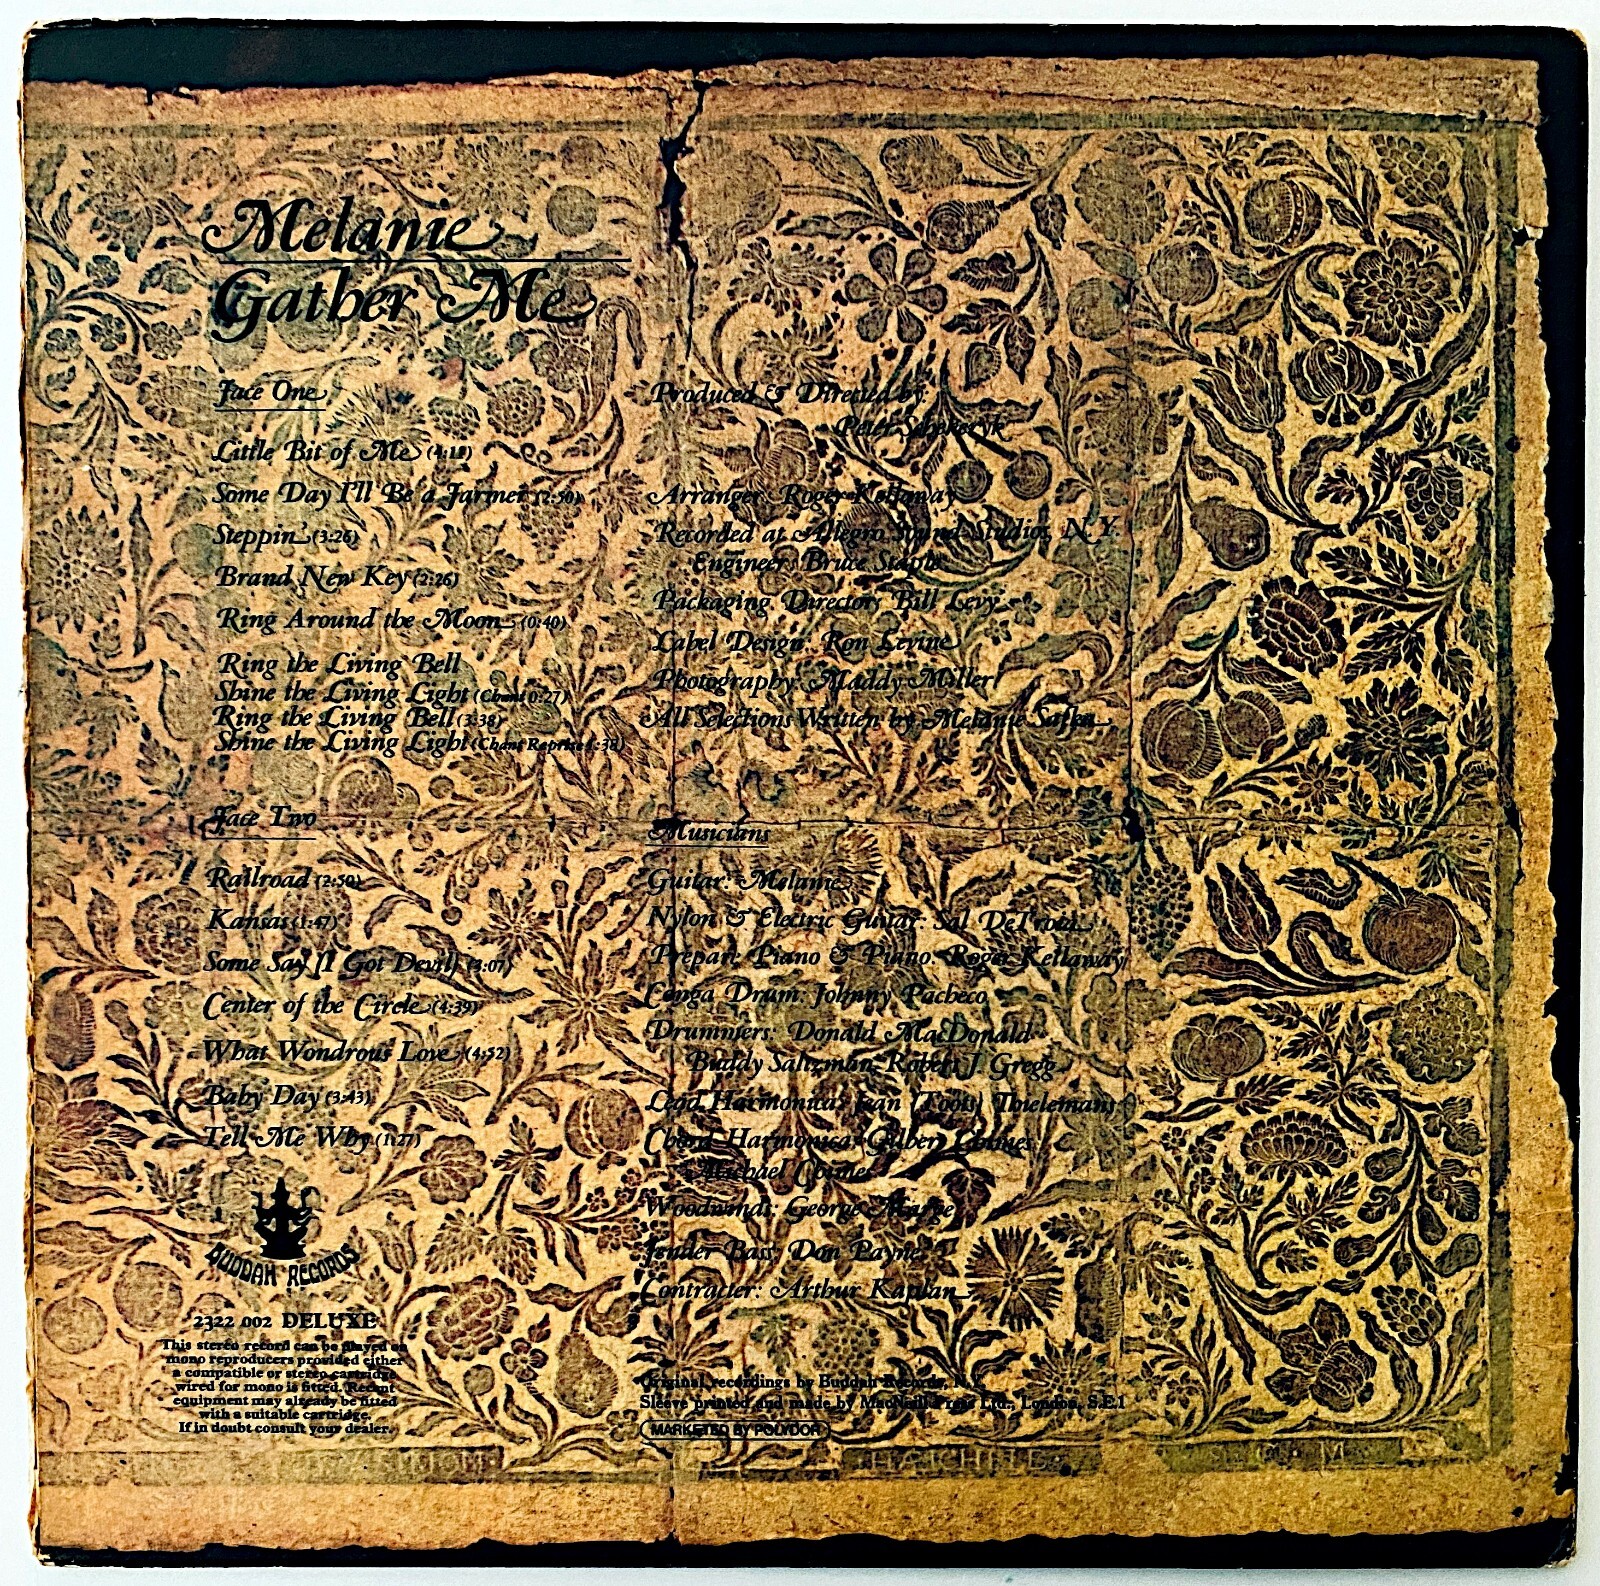 Melanie
Gather Me
Face One
Little Bit of Me (4:11)
Some Day I'll Be a Farmer (2:50)
Steppin (3:26)
Brand New Key (2:26)
Ring Around the Moon (0:40)
Ring the Living Bell
Shine the Living Light (Chant 0:27)
Ring the Living Bell (3:38)
Shine the Living Light (Chant Reprise 1:38)
Face Two
Railroad (2:50)
Kansas (1:47)
Some Say (I Got Devil) (3:07)
Center of the Circle (4:39)
What Wondrous Love (4:52)
Baby Day (3:43)
Tell Me Why (1:27)
BUDDAH RECORDS
2322 002 DELUXE
This stereo record can be played on
mono reproducers provided either
a compatible or stereo cartridge
wired for mono is fitted. Recent
equipment may already be fitted
with a suitable cartridge.
If in doubt consult your dealer.
Produced & Directed by:
Peter Schekeryk
Arranger: Roger Kellaway
Recorded at Allegro Sound Studios, N.Y.
Engineer: Bruce Staple
Packaging Director: Bill Levy
Label Design: Ron Levine
Photography: Maddy Miller
All Selections Written by: Melanie Safka
Musicians
Guitar: Melanie
Nylon & Electric Guitar: Sal DeTroia
Prepare Piano & Piano: Roger Kellaway
Conga Drum: Johnny Pacheco
Drummers: Donald MacDonald
Buddy Saltzman, Robert J. Gregg
Lead Harmonica: Jean (Toots) Thielemans
Chord Harmonica: Gilbert Chimes
Michael Chimes
Woodwinds: George Marge
Fender Bass: Don Payne
Contracter: Arthur Kaplan
Original recordings by Buddah Records, N.Y.
Sleeve printed and made by MacNeill Press Ltd., London, S.E.1
MARKETED BY POLYDOR